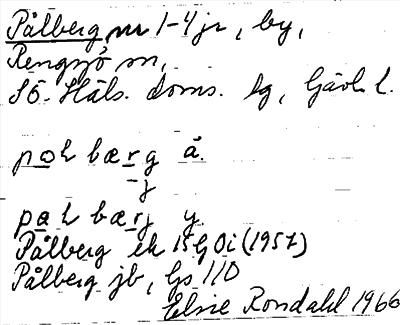 Pålberg nr 1-4 jr, by,
Rengsjö sn,
Sö. Häls. doms. lg, Gävl. l.
pol bærg å.
j
pal bærj y.
Pålberg ek 15G0i (1957)
Pålberg jb, Gs 110
Elsie Rondahl 1966